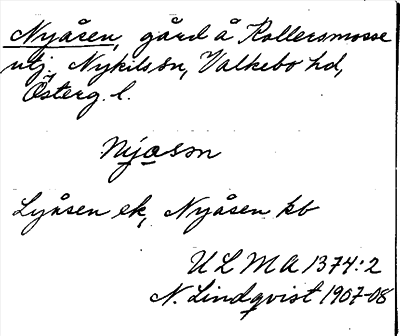 Nyåsen, gård å Rollersmosse
utj. Nykils sn, Valkebo hd,
Österg. l.
Nyåsən
Lyåsen ek, Nyåsen kb
ULMA 1374:2
N. Lindqvist 1907-08